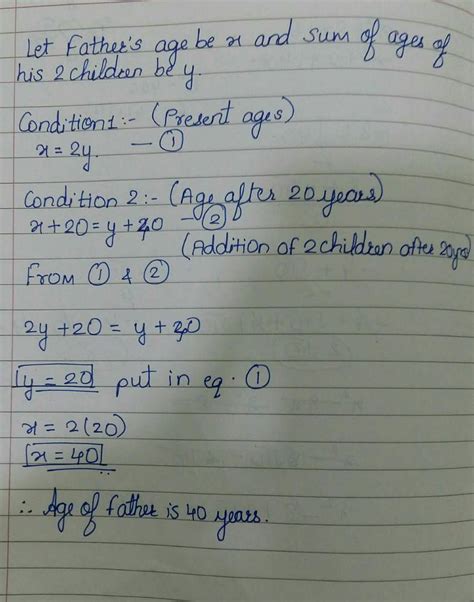 Let Father's age be x and sum of ages of
his 2 children be y.
Condition 1:- (Present ages)
x = 2y. — ①
Condition 2:- (Age after 20 years)
x+20 = y+40 — ②
(Addition of 2 children after 20yrs)
From ① & ②
2y+20 = y+40
y = 20 put in eq. ①
x = 2(20)
x = 40
∴ Age of father is 40 years.